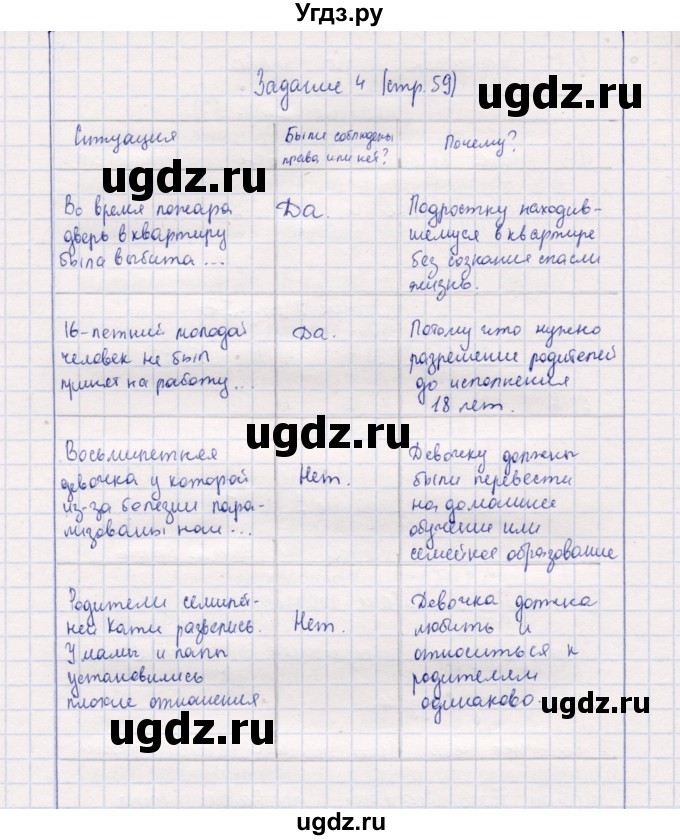 Угдз.ру
Задание 4 (стр. 59)
ugdz.ru
Ситуация
Были соблюдены
права или нет?
Почему?
ugdz.ru
ugdz.ru
Во время пожара
дверь в квартиру
была выбита...
Да.
Подростку находив-
шемуся в квартире
без сознания спасли
жизнь.
16-летний молодой
человек не был
принят на работу...
Да.
Потому что нужно
разрешение родителей
до исполнения
18 лет.
ugdz.ru
Восьмилетняя
девочка у которой
из-за болезни пара-
лизованы ноги...
Нет.
Девочку должны
были перевести
на домашнее
обучение или
семейное образование
Родители семилет-
ней Кати развелись.
У мамы и папы
установились
плохие отношения
Нет.
Девочка должна
любить и
относиться к
родителям
одинаково.
ugdz.ru
ugdz.ru
ugdz.ru